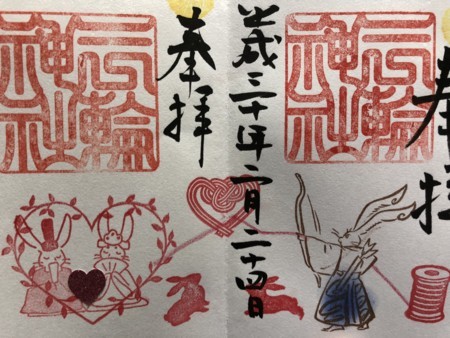 奉拝
三輪
神社
平成三十年二月二十四日
奉拝
三輪
神社